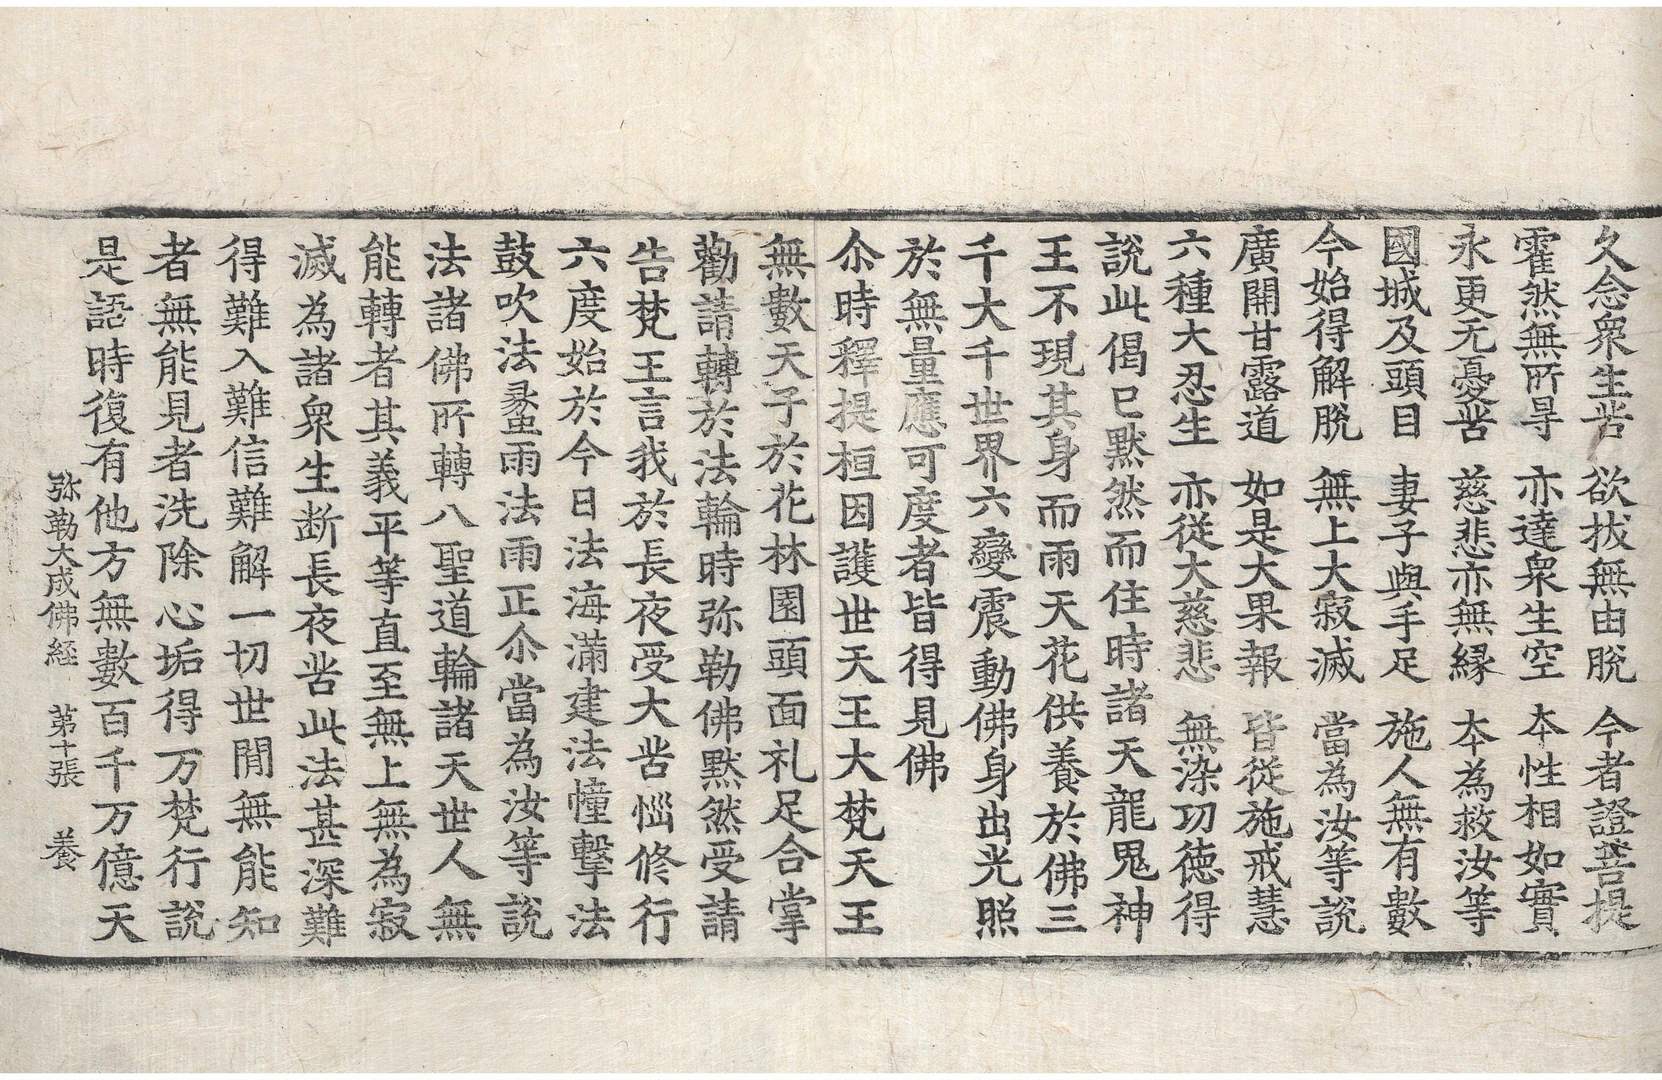 久念衆生苦 欲拔無由脫 今者證菩提
霍然無所㝵 亦達衆生空 本性相如實
永更无憂苦 慈悲亦無緣 本為救汝等
國城及頭目 妻子與手足 施人無有數
今始得解脫 無上大寂滅 當為汝等說
廣開甘露道 如是大果報 皆從施戒慧
六種大忍生 亦從大慈悲 無染功德得
說此偈已默然而住時諸天龍鬼神
王不現其身而雨天花供養於佛三
千大千世界六變震動佛身出光照
於無量應可度者皆得見佛
尒時釋提桓因護世天王大梵天王
無數天子於花林園頭面礼足合掌
勸請轉於法輪時弥勒佛默然受請
告梵王言我於長夜受大苦惱修行
六度始於今日法海滿建法幢擊法
鼓吹法蠡雨法雨正尒當為汝等說
法諸佛所轉八聖道輪諸天世人無
能轉者其義平等直至無上無為寂
滅為諸衆生斷長夜苦此法甚深難
得難入難信難解一切世閒無能知
者無能見者洗除心垢得万梵行說
是語時復有他方無數百千万億天
弥勒大成佛経 第十張 養